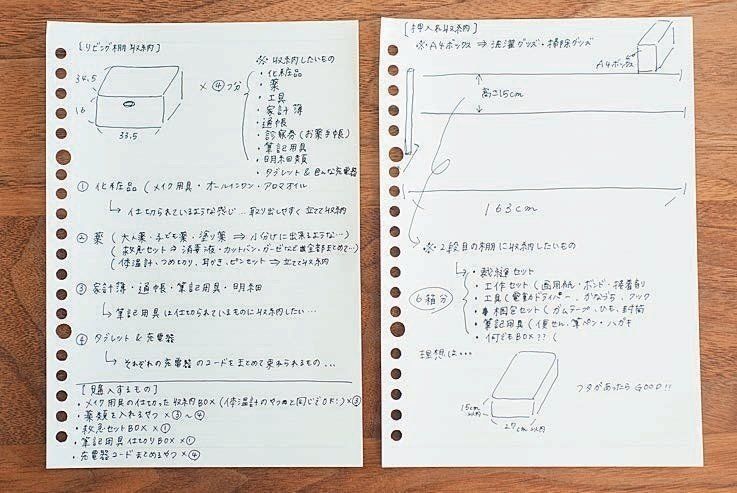 [リビング棚収納]
34.5
16
33.5
× ④つ分
※ 収納したいもの
・化粧品
・薬
・工具
・家計簿
・通帳
・診察券(お薬手帳)
・筆記用具
・明細類
・タブレット & 色んな充電器
① 化粧品 (メイク用具・オールインワン・アロマオイル
↳ 仕切られているような感じ… 取り出しやすく 立てて収納
② 薬 (大人薬・子ども薬・塗り薬 ⇒ 小分けに出来るような…)
(救急セット ⇒ 消毒液・カットバン・ガーゼなど全部まとめて…)
(体温計、つめきり、耳かき、ピンセット ⇒ 立てて収納
③ 家計簿・通帳・筆記用具・明細
↳ 筆記用具は仕切られているものに収納したい…
④ タブレット & 充電器
↳ それぞれの充電器のコードをまとめて束ねられるもの…
[購入するもの]
・メイク用具の仕切った収納BOX (体温計のやつめと同じでOK!) × ③
・薬類を入れるやつ × ③〜④
・救急セットBOX × ①
・筆記用具仕切りBOX × ①
・充電器コードまとめるやつ × ④
[押入れ収納]
※ A4ボックス ⇒ 洗濯グッズ・掃除グッズ
A4ボックス
高さ15cm
163cm
※ 2段目の棚に収納したいもの
6箱分
・裁縫セット
・工作セット (画用紙・ボンド・接着剤
・工具 (電動ドライバー、かなづち、フック
・梱包セット (ガムテープ、ひも、封筒
・筆記用具 (便せん、筆ペン・ハガキ
・何でもBOX?? (
理想は…
15cm以内
27cm以内
フタがあったらGOOD!!